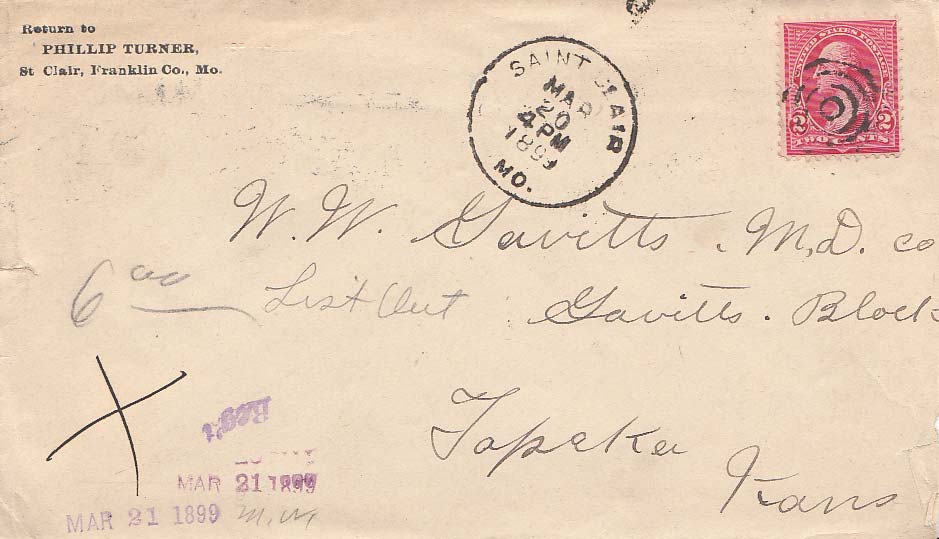 Return to
PHILLIP TURNER,
St Clair, Franklin Co., Mo.
SAINT CLAIR
MAR
20
4 PM
1899
MO.
UNITED STATES POSTAGE
2 2
TWO CENTS
W. W. Gavitts. M.D. co
6 00 List Out Gavitts. Block
Topeka
Kans
X
Reg't
MAR 21 1899
MAR 21 1899